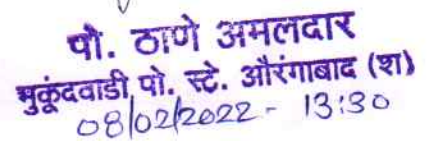 पो. ठाणे अमलदार
मुकूंदवाडी पो. स्टे. औरंगाबाद (श)
08/02/2022 - 13:30